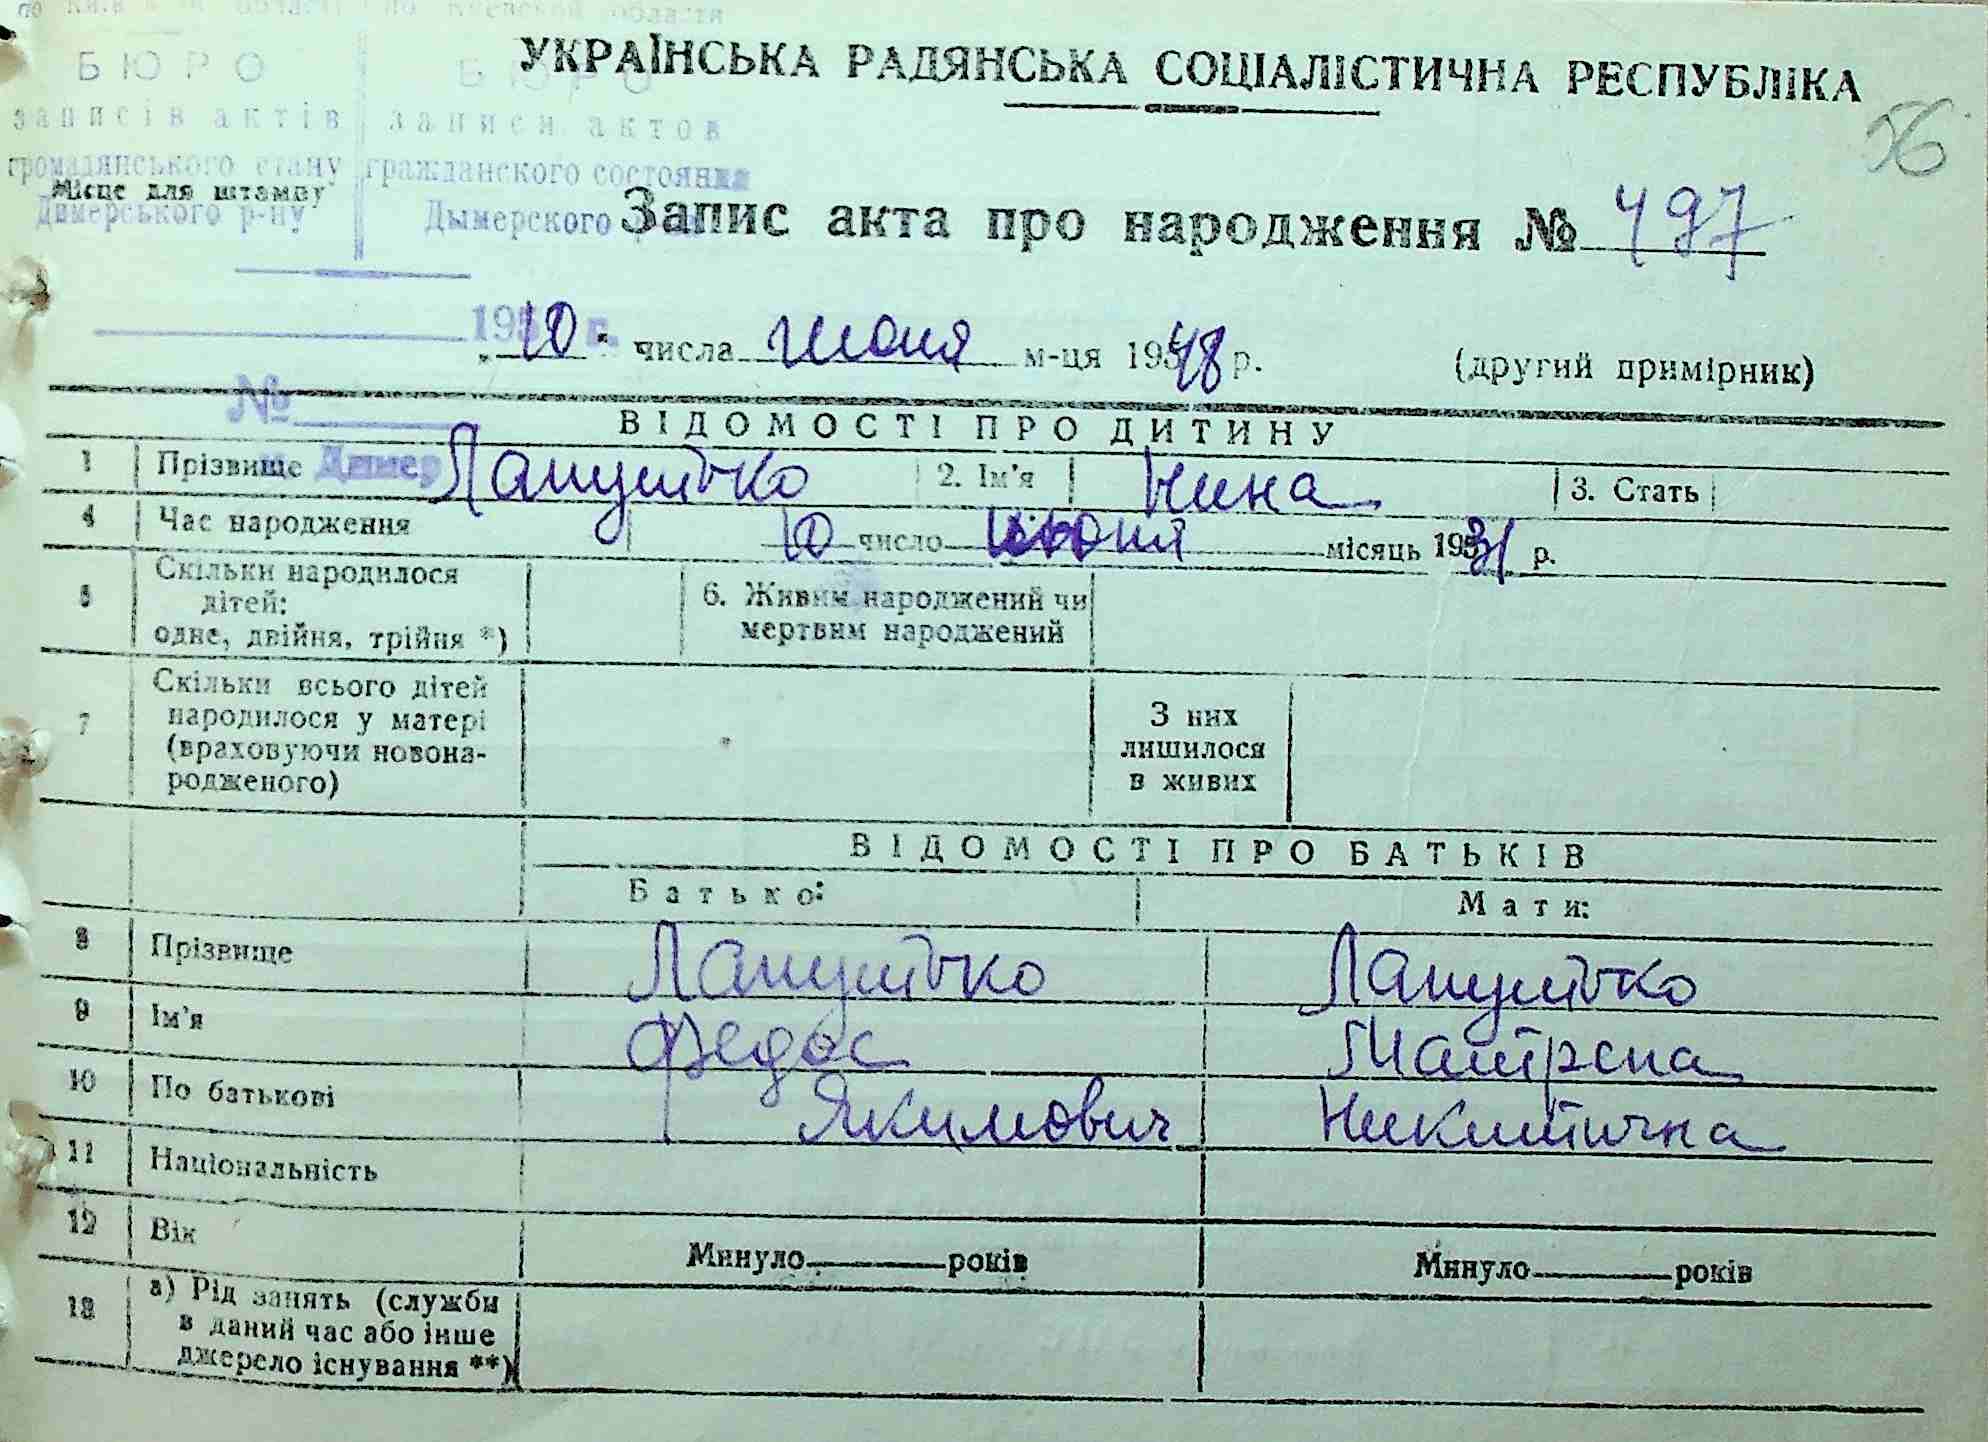 по Київській області по Киевской области
БЮРО БЮРО
записів актів записи актов
громадянського стану гражданского состояния
Димерського р-ну Дымерского
УКРАЇНСЬКА РАДЯНСЬКА СОЦІАЛІСТИЧНА РЕСПУБЛІКА
56
Місце для штампу
Запис акта про народження № 497
195 г.
„10" числа Июня м-ця 1948 р. (другий примірник)
№
ВІДОМОСТІ ПРО ДИТИНУ
м. Димер
1 Прізвище Лапутько 2. Ім'я Нина 3. Стать
4 Час народження 10 число июня місяць 1931 р.
5 Скільки народилося
дітей:
одне, двійня, трійня *)
6. Живим народжений чи
мертвим народжений
7 Скільки всього дітей
народилося у матері
(враховуючи новона-
родженого)
З них
лишилося
в живих
ВІДОМОСТІ ПРО БАТЬКІВ
Батько: Мати:
8 Прізвище Лапутько Лапутько
9 Ім'я Федос Матрена
10 По батькові Якимович Никитична
11 Національність
12 Вік Минуло років Минуло років
13 а) Рід занять (служби
в даний час або інше
джерело існування **)